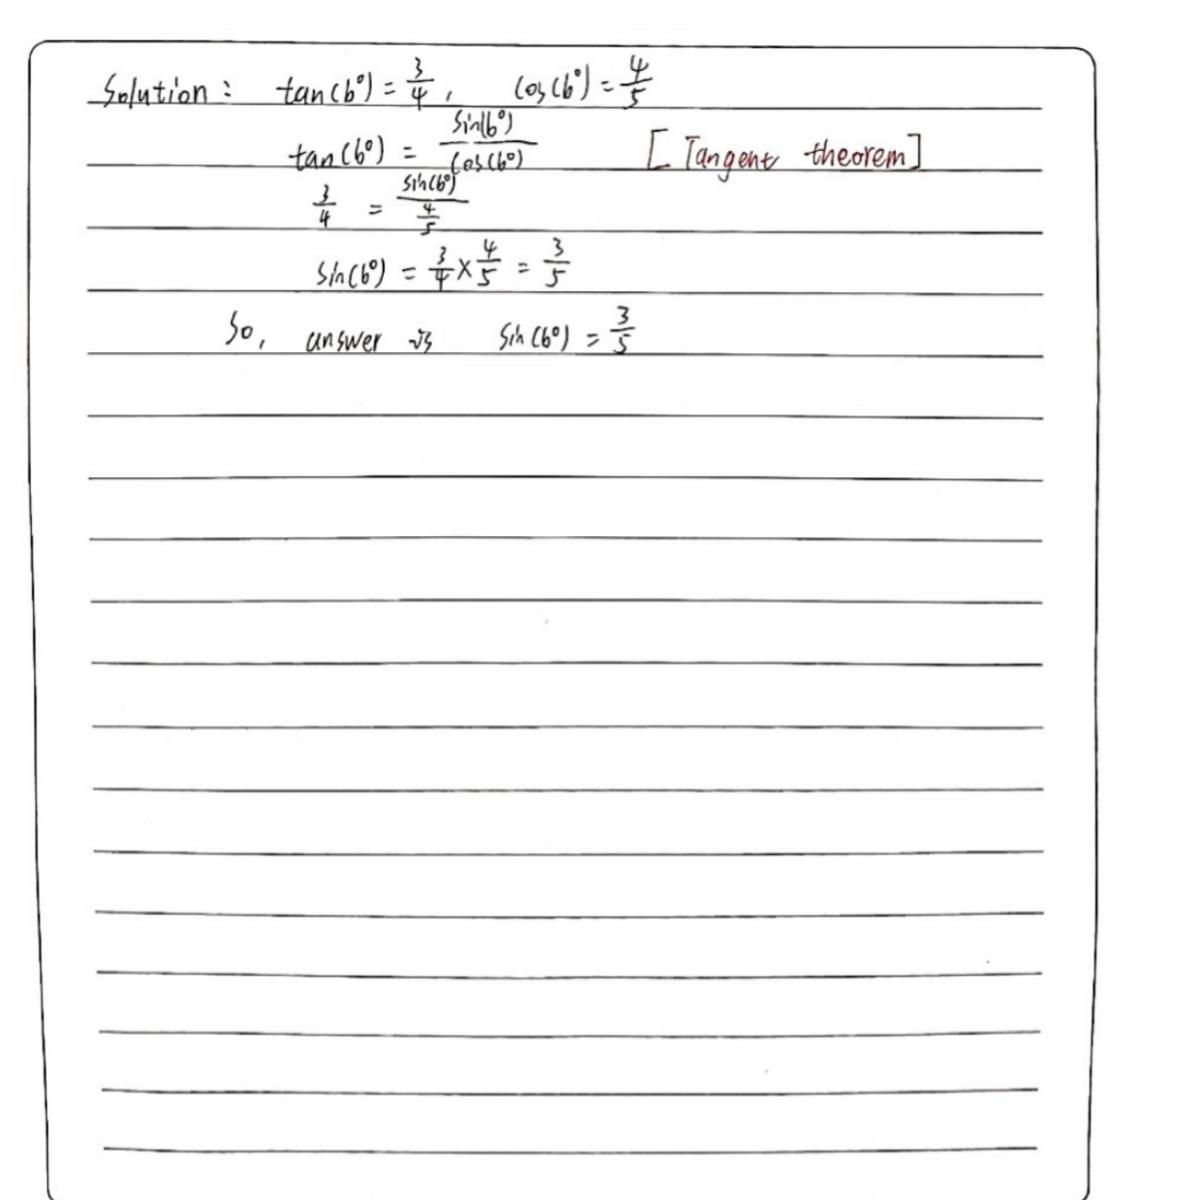 Solution: tan(b°) = 3/4, cos(b°) = 4/5
tan(b°) = sin(b°)/cos(b°) [Tangent theorem]
3/4 = sin(b°)/(4/5)
sin(b°) = 3/4 × 4/5 = 3/5
So, answer is sin(b°) = 3/5